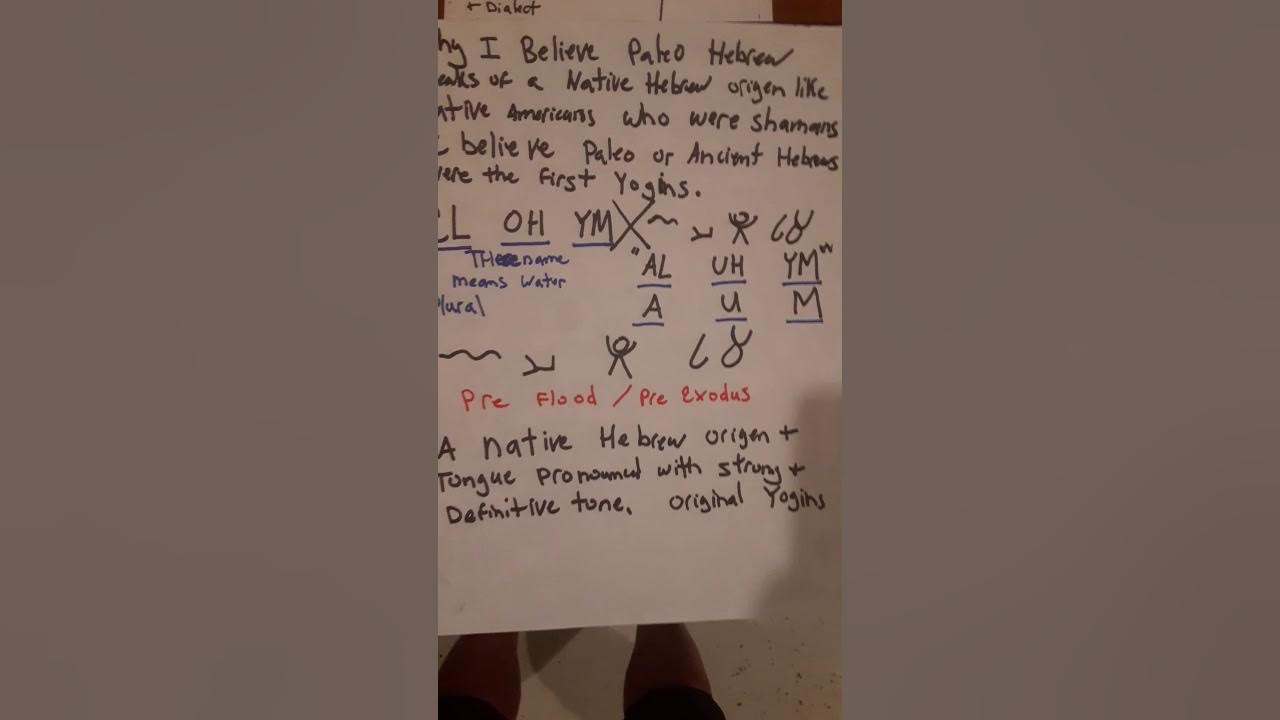 + Dialect
hy I Believe Paleo Hebrew
eaks of a Native Hebrew origen like
ative Americans who were shamans
I believe Paleo or Ancient Hebrews
vere the first Yogins.
EL OH YM
"AL UH YM"
THe name
means Water
Plural
A U M
Pre Flood / Pre Exodus
A native Hebrew origen +
Tongue pronounced with strong +
Definitive tone. Original Yogins